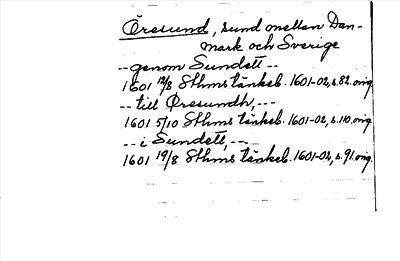 Öresund, sund mellan Dan-
mark och Sverige
-- genom Sundett --
1601 12/8 Sthms tänkeb. 1601-02, s. 82. orig.
-- till Öresundh, --
1601 5/10 Sthms tänkeb. 1601-02, s. 110. orig.
-- i Sundett, --
1601 19/8 Sthms tänkeb. 1601-02, s. 91. orig.